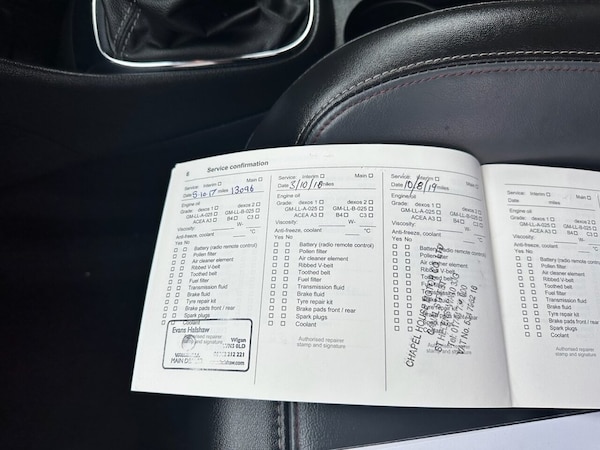 8 Service confirmation
Service: Interim Main
Date 5-10-17 miles 13096
Engine oil
Grade: dexos 1 dexos 2
GM-LL-A-025 GM-LL-B-025
ACEA A3 B4 C3
Viscosity: W-
Anti-freeze, coolant °C
Yes No
Battery (radio remote control)
Pollen filter
Air cleaner element
Ribbed V-belt
Toothed belt
Fuel filter
Transmission fluid
Brake fluid
Tyre repair kit
Brake pads front / rear
Spark plugs
Coolant
Evans Halshaw
Authorised repairer
stamp and signature
Wigan
WN5 0LD
MAIN
Service: Interim Main
Date 3/10/18 miles
Engine oil
Grade: dexos 1 dexos 2
GM-LL-A-025 GM-LL-B-025
ACEA A3 B4 C3
Viscosity: W-
Anti-freeze, coolant °C
Yes No
Battery (radio remote control)
Pollen filter
Air cleaner element
Ribbed V-belt
Toothed belt
Fuel filter
Transmission fluid
Brake fluid
Tyre repair kit
Brake pads front / rear
Spark plugs
Coolant
Authorised repairer
stamp and signature
Service: Interim Main
Date 10/8/19 miles
Engine oil
Grade: dexos 1 dexos 2
GM-LL-A-025 GM-LL-B-025
ACEA A3 B4 C3
Viscosity: W-
Anti-freeze, coolant °C
Yes No
Battery (radio remote control)
Pollen filter
Air cleaner element
Ribbed V-belt
Toothed belt
Fuel filter
Transmission fluid
Brake fluid
Tyre repair kit
Brake pads front / rear
Spark plugs
Coolant
Authorised repairer
stamp and signature
CHAPEL HOUSE LTD
ST HELENS
Tel:
VAT No.
Service
Date
Engine oil
Grade:
Viscosity:
Anti-freeze
Yes No
Battery
Pollen filter
Air cleaner
Ribbed V-belt
Toothed belt
Fuel filter
Transmission fluid
Brake fluid
Tyre repair kit
Brake pads front / rear
Spark plugs
Coolant
Authorised repairer
stamp and signature